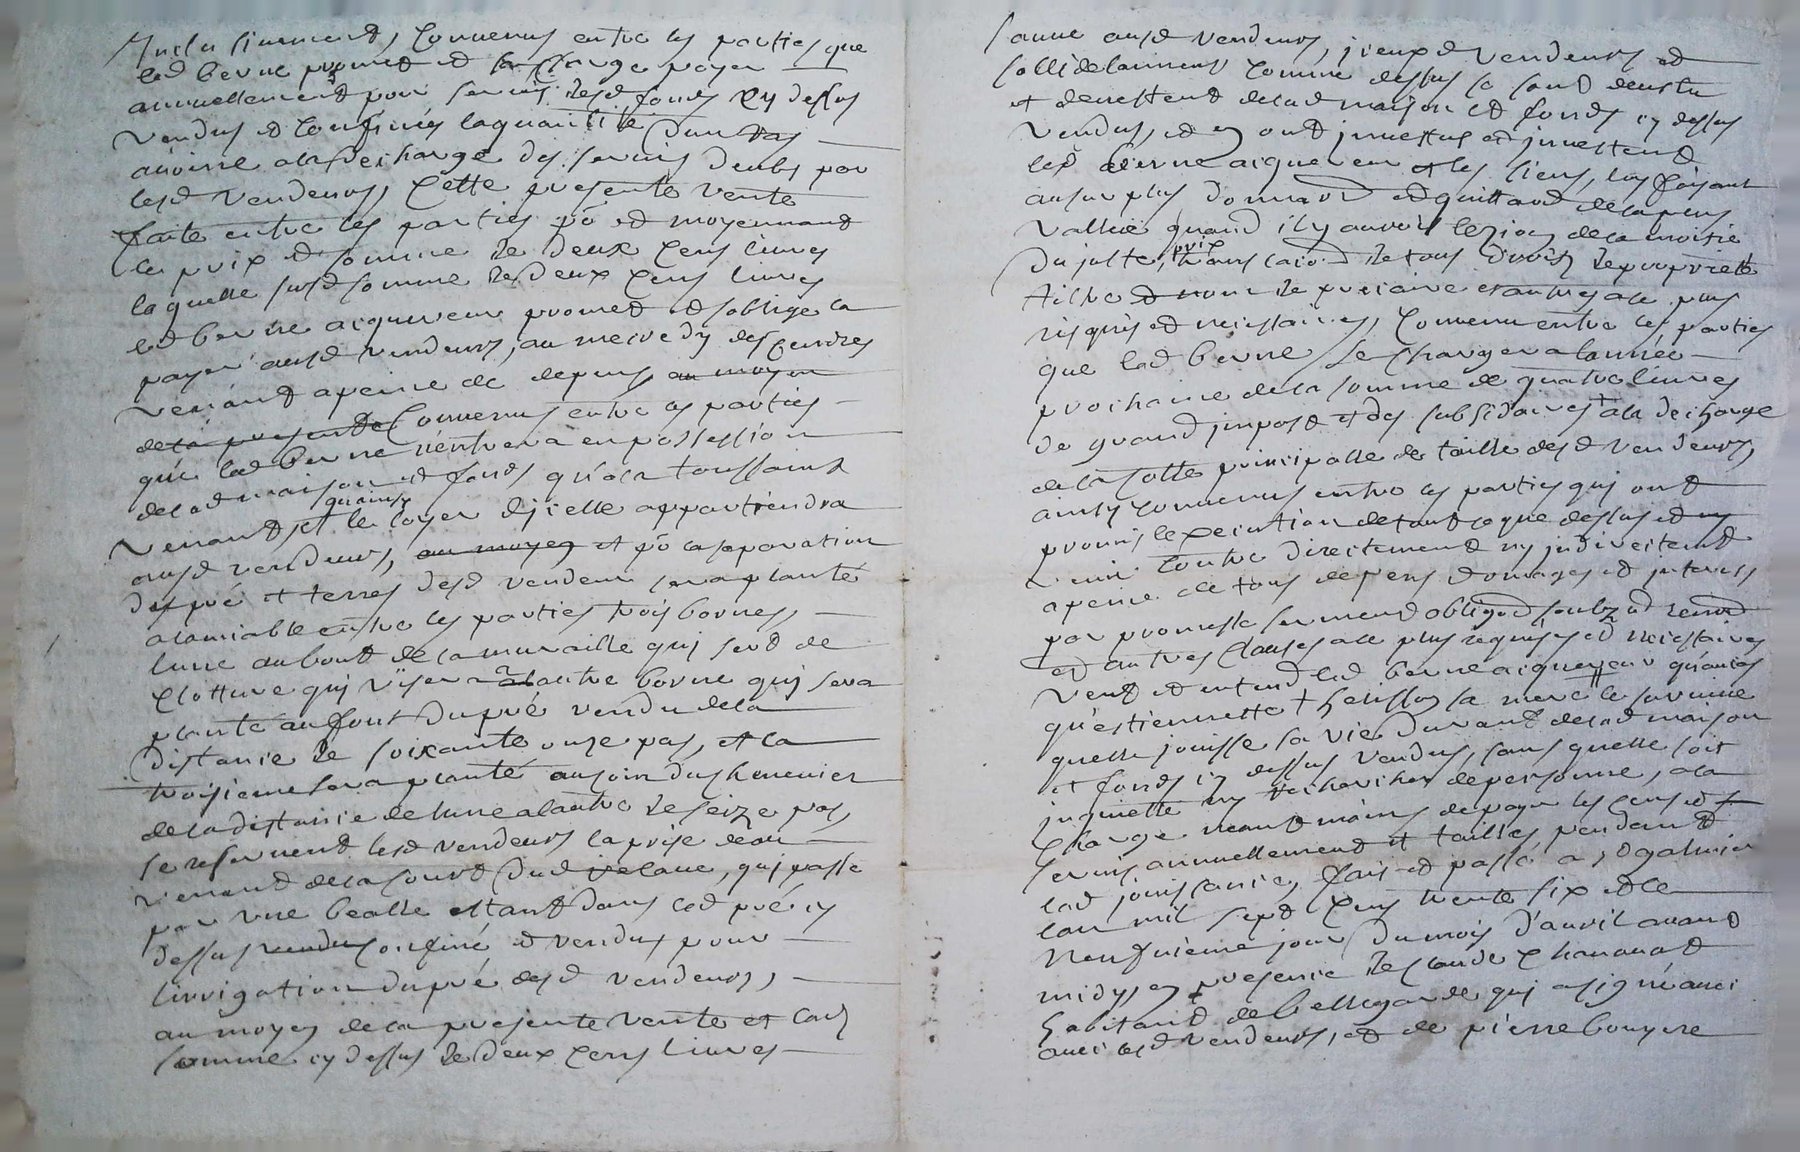 Inclusivement, Convenus entre les parties que
led berne promet et se charge payer
annuellement pour servis desd fonds cy dessus
vendus et confinés la quantité d'un ras
avoine a la décharge des servis deubs par
lesd vendeurs, Cette presente vente
faitte entre les parties pō et moyennant
le prix et somme de deux cens livres
laquelle susd somme de deux cens livres
led berne acquereur promet et s'oblige la
payer ausd vendeurs, au mecredy des cendres
venant a peine de depens au moyen
de la presente Convenus entre les parties
que led berne n'entrera en possession
de lad maison et fonds qu'a la toussaint
quainsy
venant, et le loyer d'icelle appartiendra
ausd vendeurs, au moyen et pō la separation
des pré et terres desd vendeurs sera planté
a l'amiable entre les parties trois bornes,
l'une au bout de la muraille qui sert de
clotture qui visera a l'autre borne qui sera
planté au font du pré vendu de la
distance de soixante onze pas, et la
troisieme sera planté au soin du chenevier
de la distance de l'une a l'autre de seize pas,
se reservent lesd vendeurs la prise d'eau
venant de la sourt dud, qui passe
par une bealle estant dans led pré cy
dessus vendu confiné et vendus pour
l'irrigation du pré desd vendeurs,
au moyen de la presente vente et lad
somme cy dessus de deux cens livres
sauve ausd vendeurs, iceux d vendeurs et
sollidairement comme dessus se sont devestu
et devestent de lad maison et fonds cy dessus
vendus, et en ont investus et investent
led berne acquereur et les siens, luy faisant
au surplus donnaon et quittance de la plus
vallue quand il y auroit lezion de la moitié
prix
du juste, transcaōn de tous droits de proprietté
tiltre et nom de precaire et autres a ce plus
requis et necessaires, Convenu entre les parties
que led berne se chargera l'année
prochaine de la somme de quatre livres
de grand impost et des subsidaires a la décharge
de la cotte principalle de taille desd vendeurs,
ainsy convenus entre les parties qui ont
promis l'execution de tout ce que dessus et ny
venir contre directement ny indirectemt
a peine de tous depens domages et interests
par promesse serment obligaōn soubz et renon
et autres clauses a ce plus requises et necessaires
veut et entend led berne acquereur qu'
qu'estiennette + helisson sa mere le survive
quelle jouisse sa vie durant de lad maison
et fonds cy dessus vendus, sans quelle soit
inquiette ny recherchée de personne, a la
charge neantmoins de payer les cens et
servis annuellement et tailles pendant
lad jouissance, fait et passé a St galmier
l'an mil sept cens trente six et le
neufvieme jour du mois d'avril avant
midy, en presence de claude chananat
habitant de bellegarde qui a signé avec
avec lesd vendeurs, et de pierre bouyere